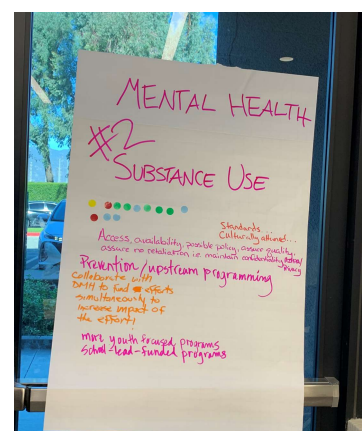 MENTAL HEALTH
#2
SUBSTANCE USE
Standards...
Culturally attuned...
Access, availability, possible policy, assure quality,
assure no retaliation i.e. maintain confidentiality
privacy
Prevention/upstream programming
Collaborate with
DMH to find efforts
simultaneously to
increase impact of
the effort!
more youth focused programs
School-lead-funded programs